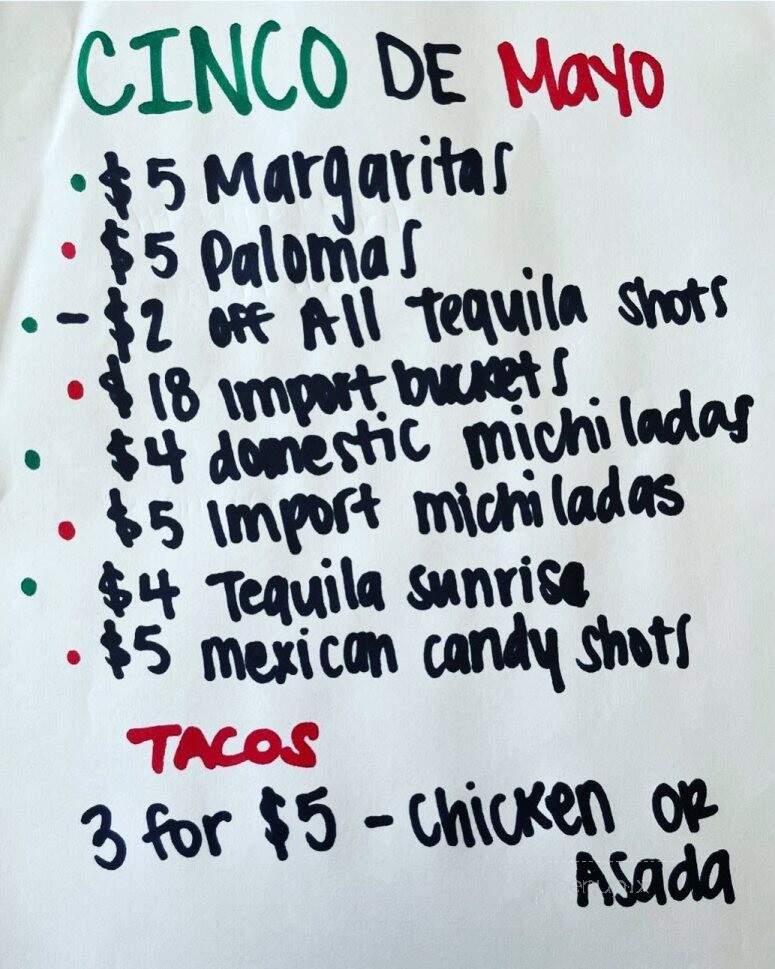 CINCO DE Mayo
• $5 Margaritas
• $5 Palomas
• - $2 off All tequila shots
• $18 import buckets
• $4 domestic michiladas
• $5 Import michiladas
• $4 Tequila sunrise
• $5 mexican candy shots
TACOS
3 for $5 - Chicken OR
Asada